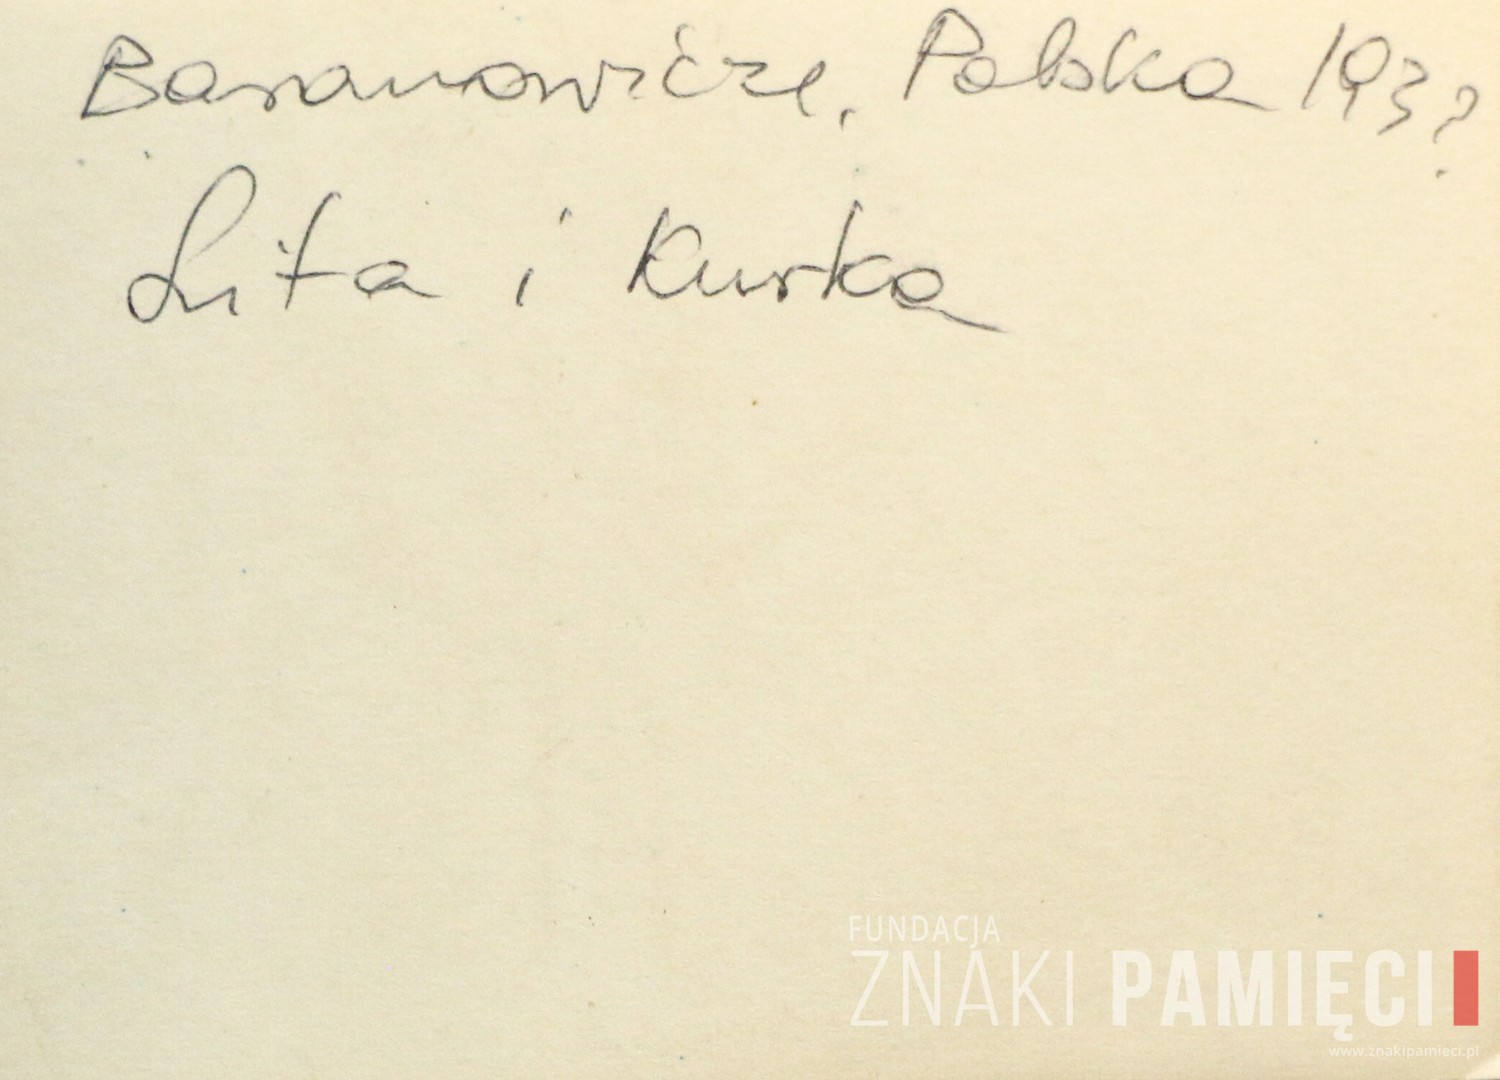 Baranowicze, Polska 193?
Lita i Kurka
FUNDACJA
ZNAKI PAMIĘCI
www.znakipamieci.pl